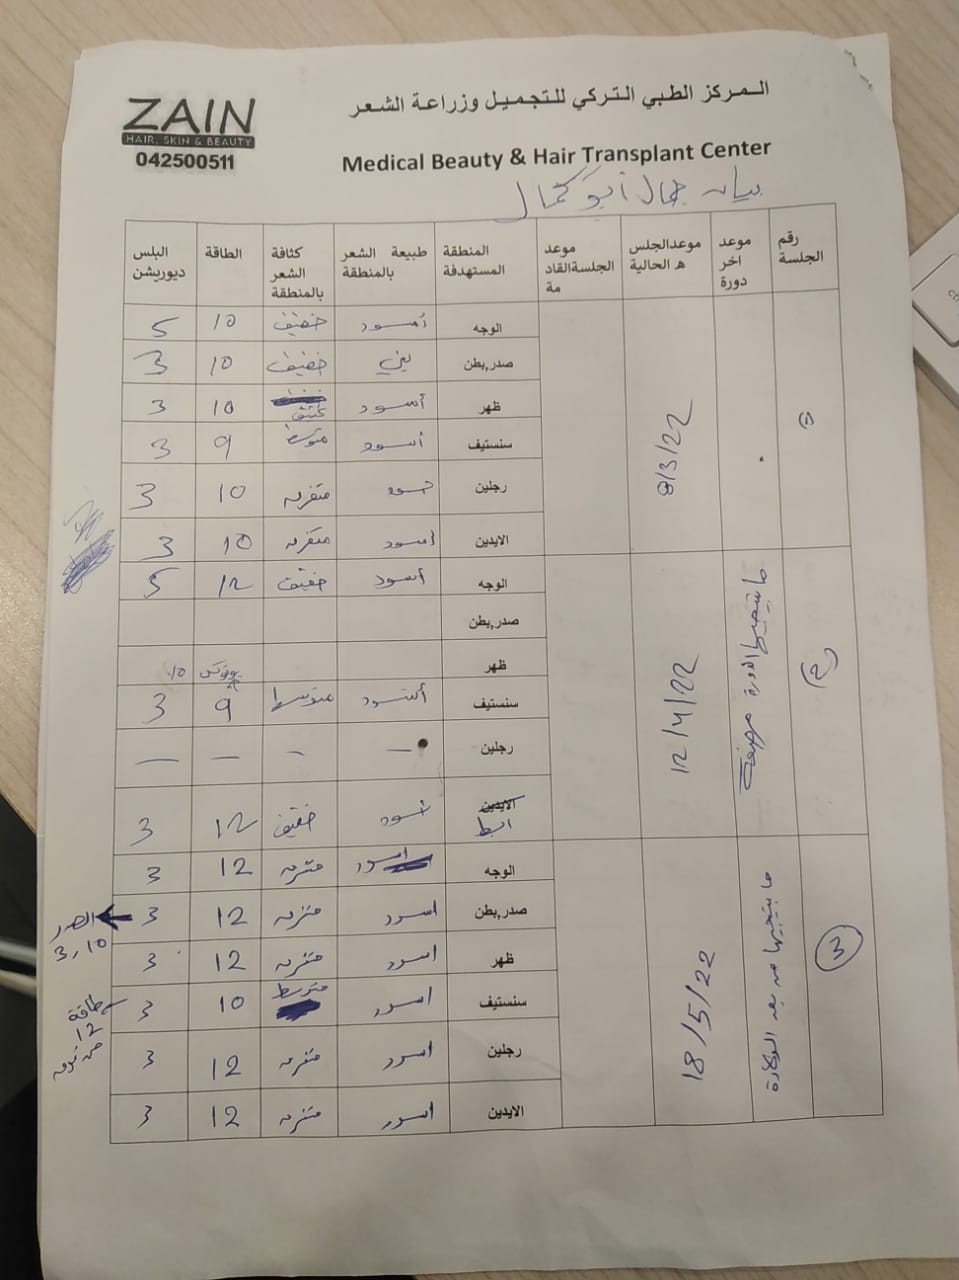 ZAIN
HAIR, SKIN & BEAUTY
042500511
المركز الطبي التركي للتجميل وزراعة الشعر
Medical Beauty & Hair Transplant Center
بيان جمال أبو كمال
رقم الجلسة | موعد اخر دورة | موعدالجلسه الحالية | موعد الجلسةالقادمة | المنطقة المستهدفة | طبيعة الشعر بالمنطقة | كثافة الشعر بالمنطقة | الطاقة | البلس ديوريشن
8/3/22
الوجه أسود خفيف 10 5
صدر,بطن بني خفيف 10 3
ظهر أسود 10 3
سنستيف أسود متوسط 9 3
رجلين أسود متفرق 10 3
الايدين أسود متفرق 10 3
12/4/22
الوجه أسود خفيف 12 5
صدر,بطن
ظهر
10
سنستيف أسود متوسط 9 3
رجلين — – — —
الايدين
ابط أسود خفيف 12 3
3 ما بيتجيها من بعد الولادة 18/5/22
الوجه اسود متفرق 12 3
صدر,بطن اسود متفرق 12 3
الصدر
3,10
ظهر اسود متفرق 12 3
سنستيف اسود متوسط 10 3
طاقة
12
من فوق
رجلين اسود متفرق 12 3
الايدين اسود متفرق 12 3